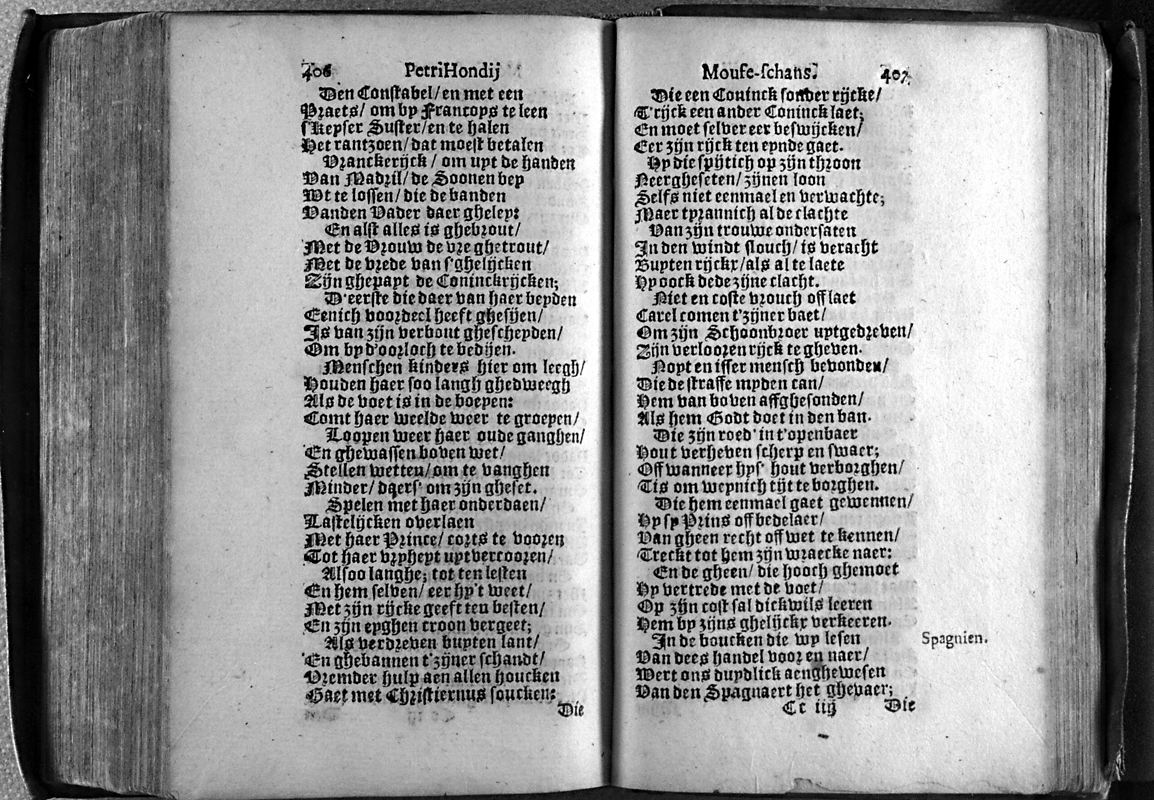 406 Petri Hondij
Den Constabel/ en met een
Praets/ om by Françoys te leen
s'Keyser Suster/ en te halen
Het rantzoen/ dat moest betalen
Vranckerijck/ om uyt de handen
Van Madril/ de Soonen bey
Wt te lossen/ die de banden
Vanden Vader daer gheley:
En alst alles is ghebrout/
Met de Vrouw de vre ghetrout/
Met de vrede van s'ghelijcken
Zijn ghepayt de Coninckrijcken;
D'eerste die daer van haer beyden
Eenich voordeel heeft ghesijen/
Is van zijn verbout gheschepden/
Om by d'oorloch te bedijen.
Menschen kinders hier om leegh/
Houden haer soo langh ghedweegh
Als de voet is in de boeyen:
Comt haer weelde weer te groeyen/
Loopen weer haer oude ganghen/
En ghewassen boven wet/
Stellen wetten/ om te vanghen
Minder/ daers' om zijn gheset.
Spelen met haer onderdaen/
Lastelijcken overlaen
Met haer Prince/ corts te vooren
Tot haer vryheyt uytvercooren/
Alsoo langhe; tot ten lesten
En hem selven/ eer hy't weet/
Met zijn rijcke geeft ten besten/
En zijn eyghen croon vergeet;
Als verdreven buyten lant/
En ghebannen t'zijner schandt/
Vremder hulp aen allen houcken
Gaet met Christiernus soucken:
Die
Mouse-schans. 407
Die een Coninck sonder rijcke/
T'rijck een ander Coninck laet;
En moet selver eer beswijcken/
Eer zijn rijck ten eynde gaet.
Hy die spijtich op zijn throon
Neergheseten/ zijnen loon
Selfs niet eenmael en verwachte;
Maer tyrannich al de clachte
Van zijn trouwe ondersaten
In den windt slouch/ is veracht
Buyten rijckx/ als al te laete
Hy oock dede zijne clacht.
Niet en coste vrouch off laet
Carel comen t'zijner baet/
Om zijn Schoonbroer uytgedreven/
Zijn verlooren rijck te gheven.
Noyt en isser mensch bevonden/
Die de straffe myden can/
Hem van boven affghesonden/
Als hem Godt doet in den ban.
Die zijn roed' in t'openbaer
Hout verheven scherp en swaer;
Off wanneer hys' hout verborghen/
Tis om weynich tijt te borghen.
Die hem eenmael gaet gewennen/
Hy sy Prins off bedelaer/
Van gheen recht off wet te kennen/
Treckt tot hem zijn wraecke naer:
En de gheen/ die hooch ghemoet
Hy vertrede met de voet/
Op zijn cost sal dickwils leeren
Hem by zijns ghelijckx verkeeren.
In de boucken die wy lesen
Spagnien.
Van dees handel voor en naer/
Wert ons duydlick aenghewesen
Van den Spagnaert het ghevaer;
Cc iij Die